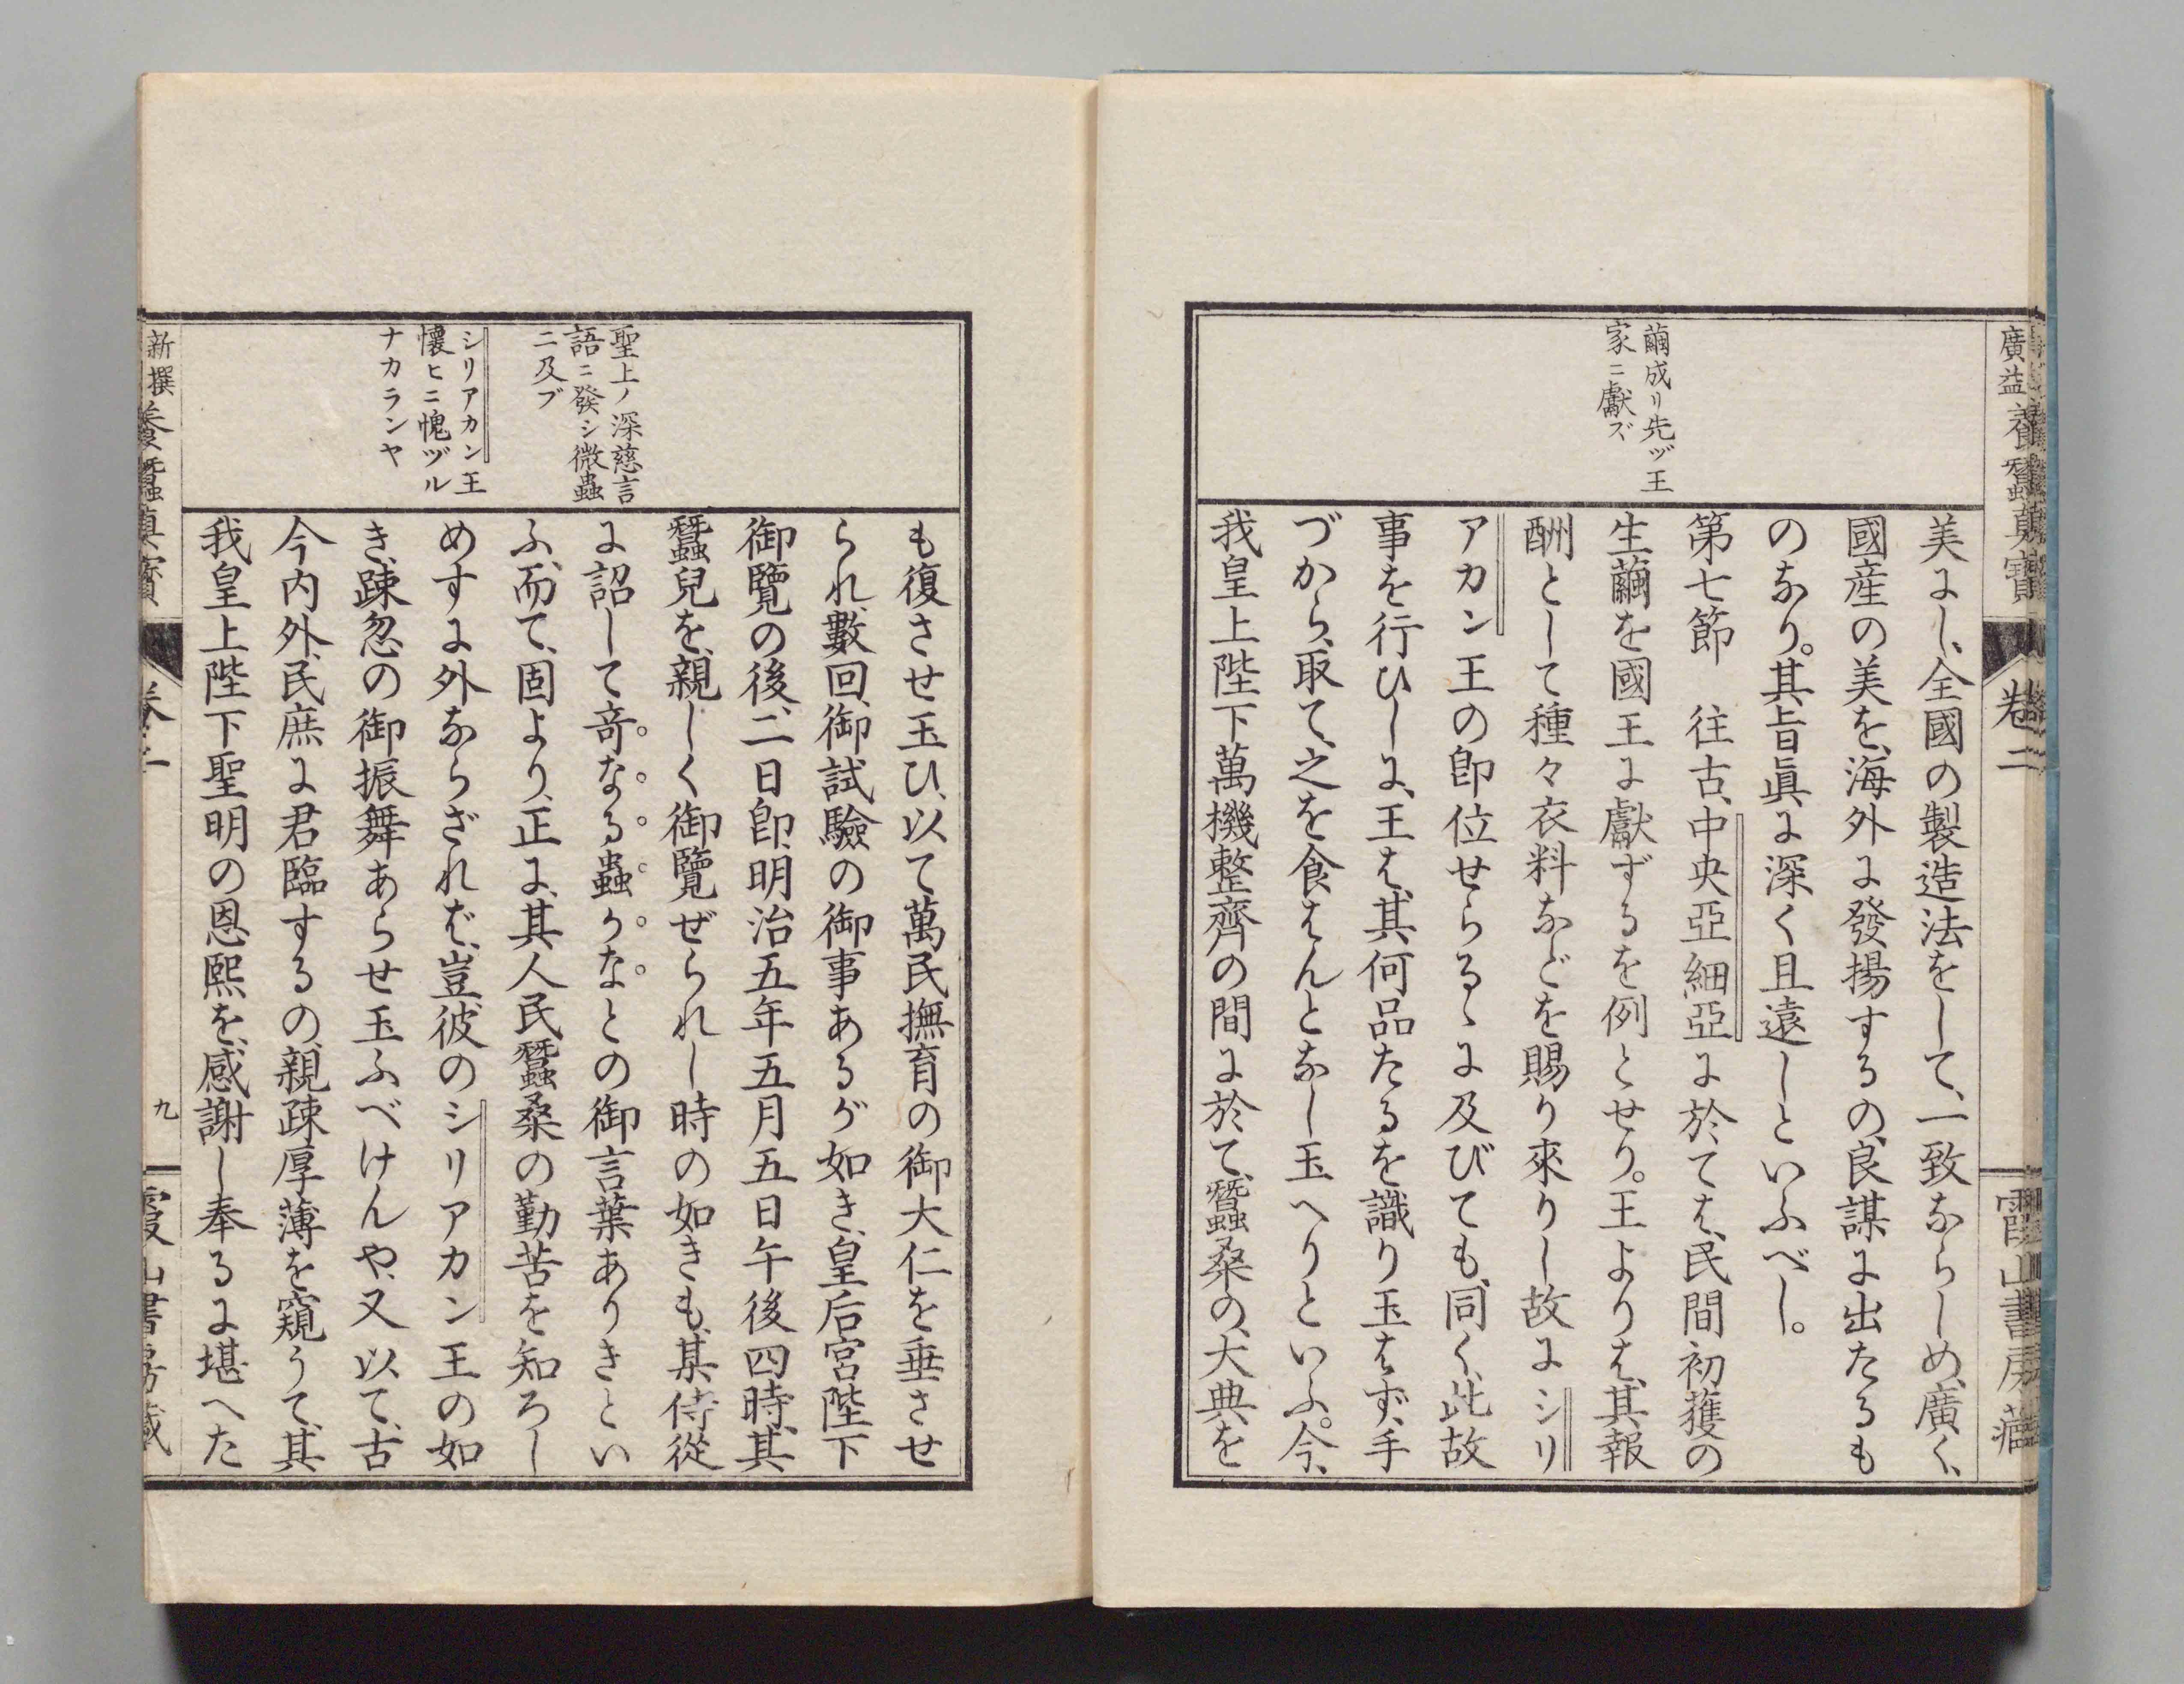 廣益養蠶真寶
巻二
霞山書房藏
繭成リ先ヅ王
家ニ獻ズ
美にし、全國の製造法をして、一致ならしめ、廣く、
國産の美を、海外に發揚するの、良謀に出たるも
のなり。其旨眞に深く且遠しといふべし。
第七節　往古、中央亞細亞に於ては、民間初獲の
生繭を國王に獻ずるを例とせり。王よりは、其報
酬として種々衣料などを賜り來りし故にシリ
アカン王の即位せらるゝに及びても、同く、此故
事を行ひしに、王は、其何品たるを識り玉はず、手
づから、取て、之を食はんとなし玉へりといふ。今、
我皇上陛下萬機整齊の間に於て、蠶桑の、大典を
聖上ノ深慈言
語ニ發シ微蟲
ニ及ブ
シリアカン王
懷ヒニ愧ヅル
ナカランヤ
も復させ玉ひ、以て萬民撫育の御大仁を垂させ
られ、數回、御試驗の御事あるが如き、皇后宮陛下
御覽の後、二日即、明治五年五月五日午後四時、其
蠶兒を、親しく御覽ぜられし時の如きも、某侍從
に詔して奇なる蟲かなとの御言葉ありきとい
ふ、而て、固より、正に、其人民蠶桑の勤苦を知ろし
めすに外ならざれば、豈、彼のシリアカン王の如
き、疎忽の御振舞あらせ玉ふべけんや、又以て、古
今内外、民庶に君臨するの、親疎厚薄を窺うて、其
我皇上陛下聖明の恩熙を、感謝し奉るに堪へた
新撰養蠶眞寶
九
霞山書房藏